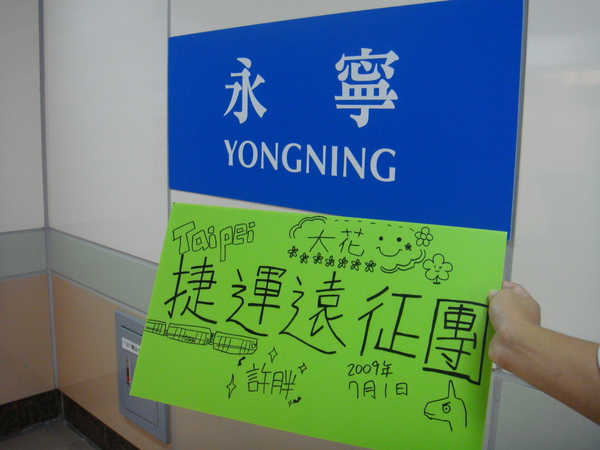 永寧
YONGNING
Taipei
大花
捷運遠征團
許胖
2009年
7月1日